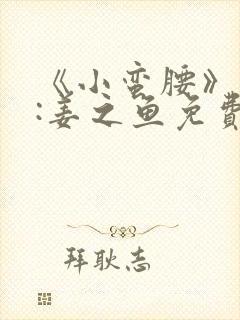 《小蛮腰》
:姜之鱼免费
拜耿志